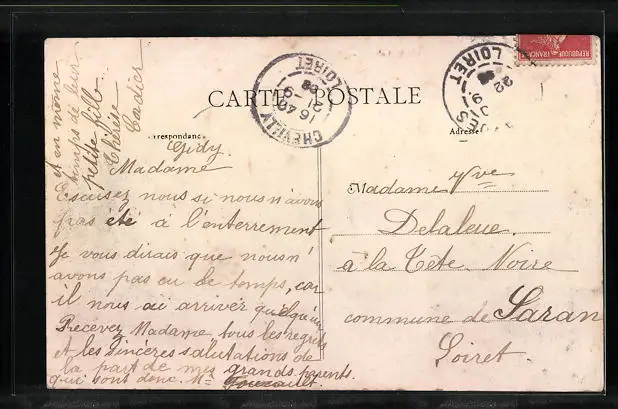 CARTE POSTALE
Correspondance
Adresse
REPUBLIQUE FRANÇAISE
CHEVILLY
16 40
21 -9
09
LOIRET
LOIRET
22
-9
Gidy.
Madame
Escusez nous si nous n'avons
pas été à l'enterrement
Je vous dirais que nous n'
avons pas eu le temps, car
il nous ai arriver quelqu'un
Recevez Madame tous les regrets
et les sincères salutations de
la part de mes grands parents.
qui sont donc Mr Foucault.
et en même
temps de leur
petite fille
Thérèse
Cardier
Madame Vve
Delaleue
à la Tête Noire
commune de Saran
Loiret.